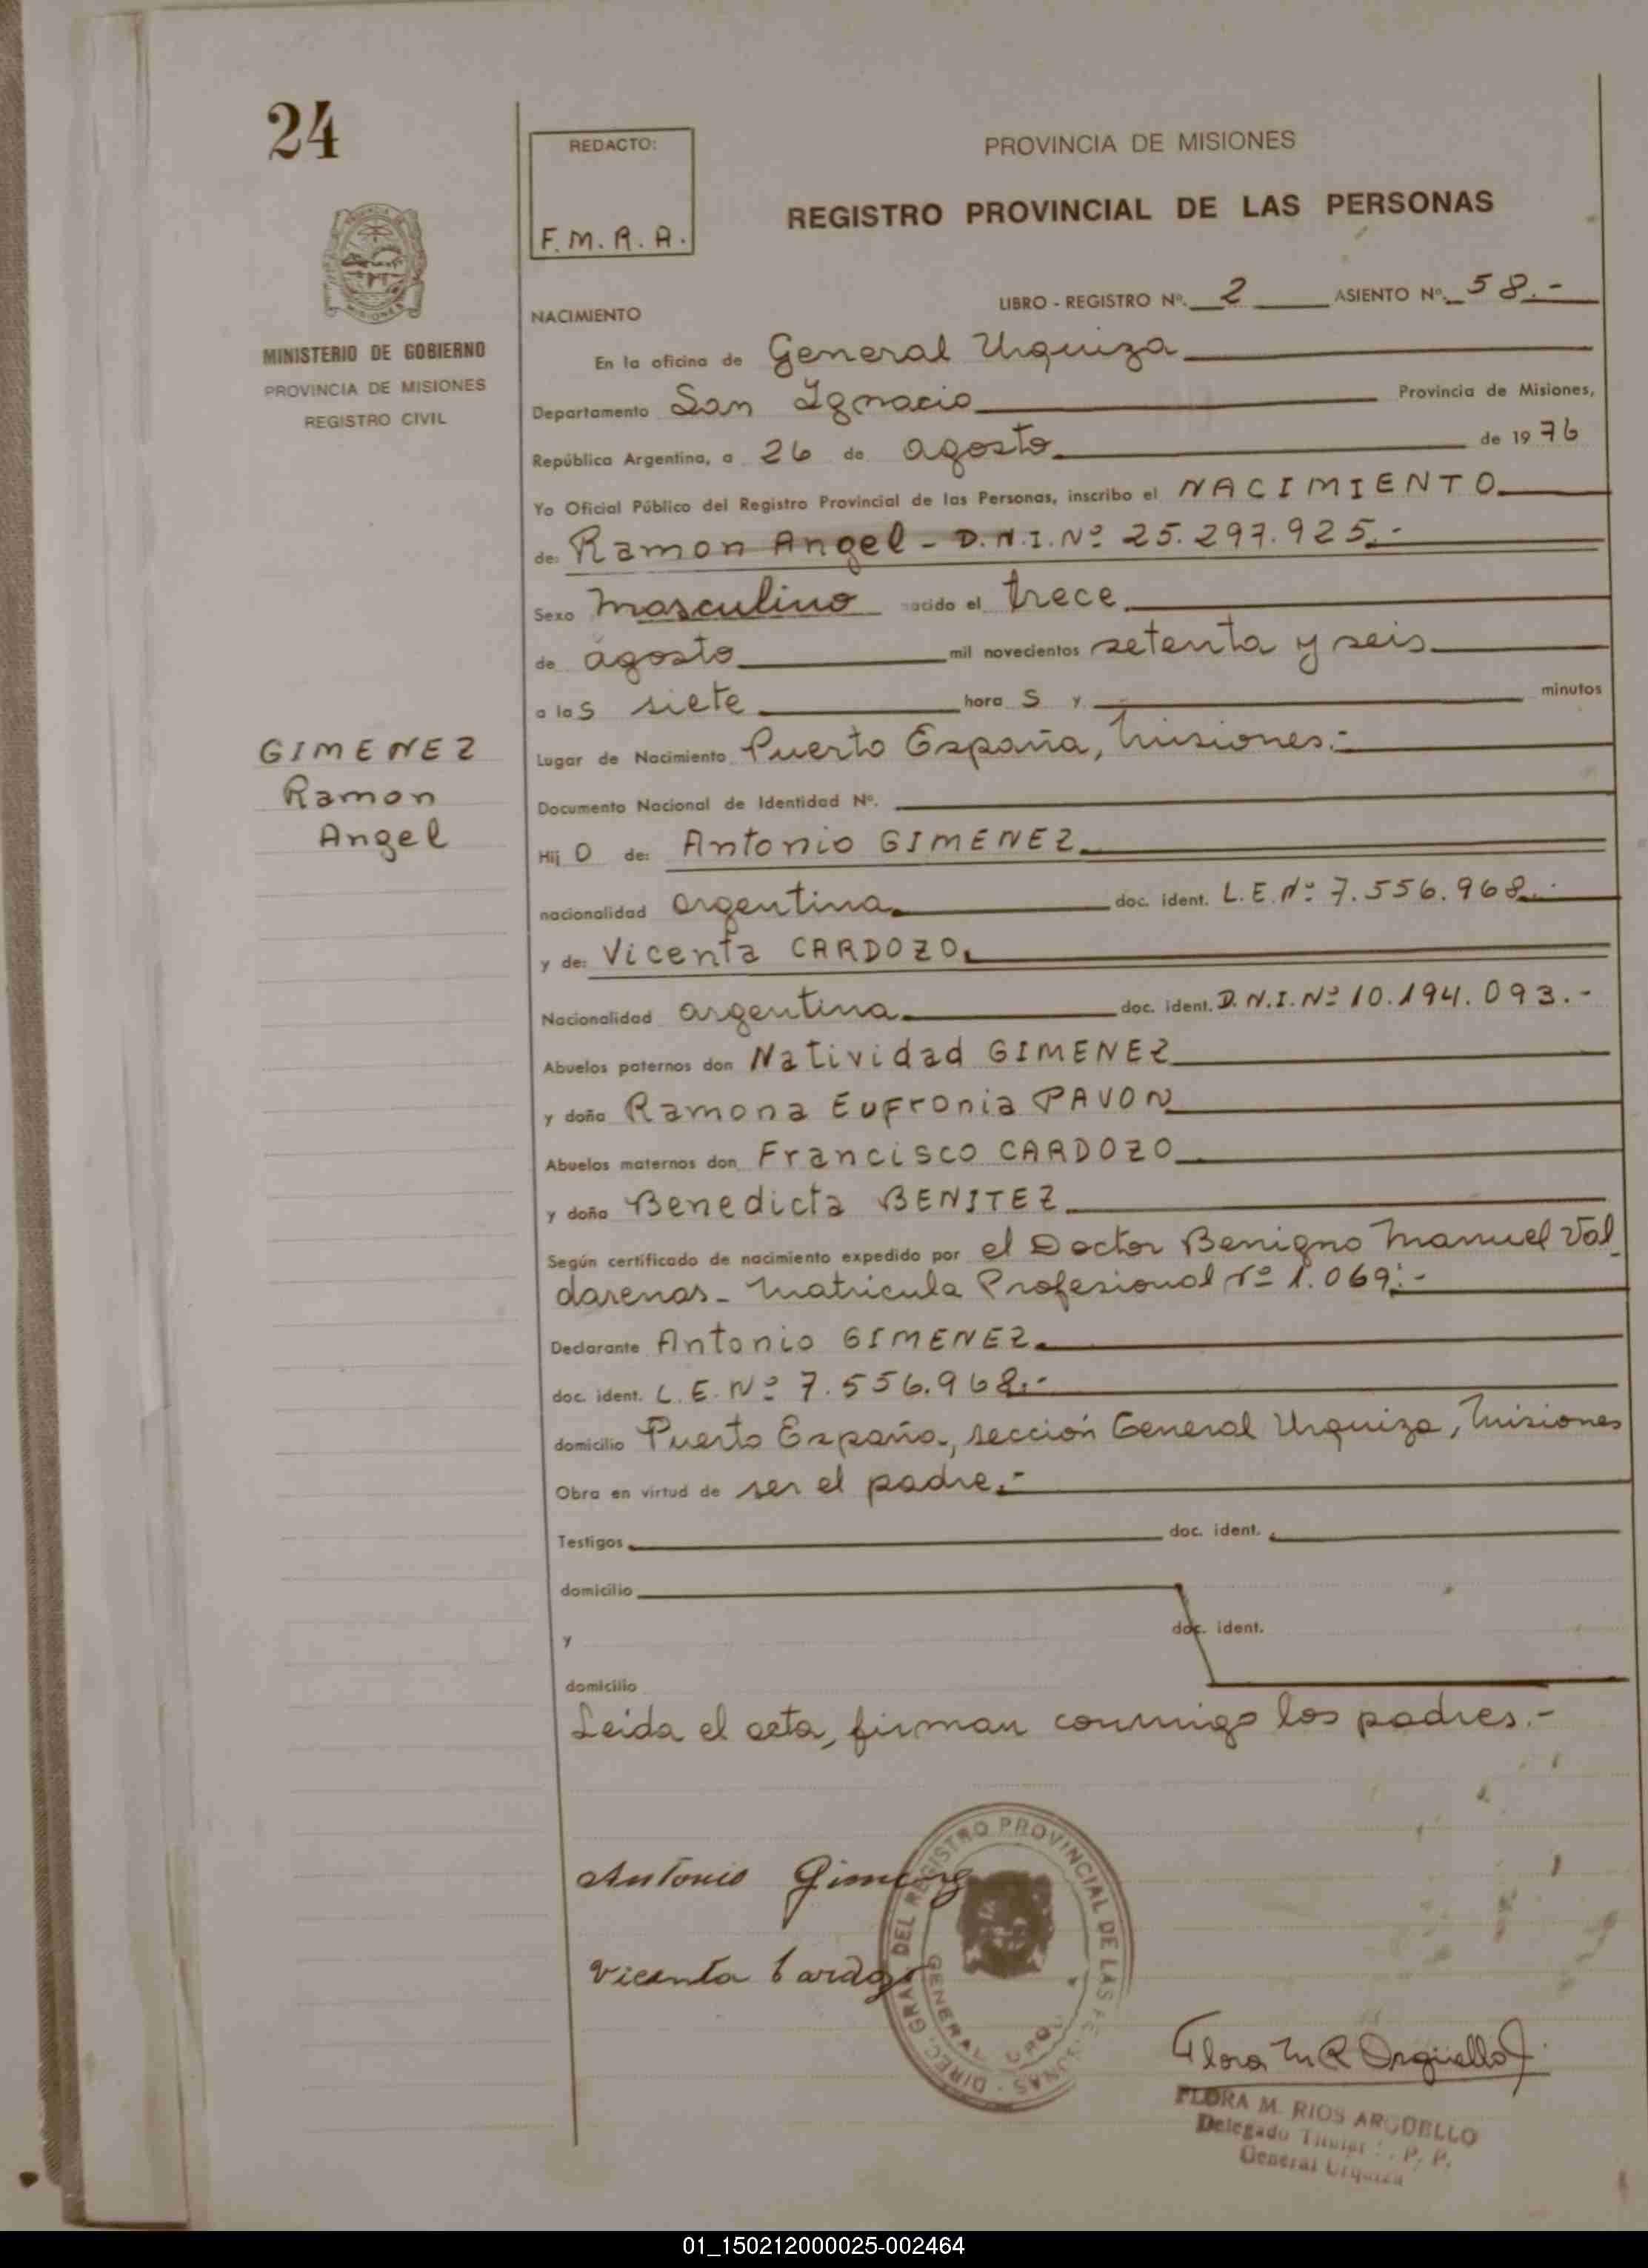 24
REDACTO:
F. M. R. A.
PROVINCIA DE MISIONES
REGISTRO PROVINCIAL DE LAS PERSONAS
MISIONES
MINISTERIO DE GOBIERNO
PROVINCIA DE MISIONES
REGISTRO CIVIL
NACIMIENTO
LIBRO - REGISTRO Nº. 2 ASIENTO Nº. 58.-
En la oficina de General Urquiza
Departamento San Ignacio Provincia de Misiones,
República Argentina, a 26 de agosto de 1976
Yo Oficial Público del Registro Provincial de las Personas, inscribo el NACIMIENTO
de: Ramon Angel - D.N.I. Nº 25.297.925.-
Sexo masculino nacido el trece
de agosto mil novecientos setenta y seis
a las siete horas y - minutos
Lugar de Nacimiento Puerto España, Misiones.-
Documento Nacional de Identidad Nº.
GIMENEZ
Ramon
Angel
Hijo de: Antonio GIMENEZ
nacionalidad argentina doc. ident. L.E. Nº 7.556.968.-
y de: Vicenta CARDOZO
Nacionalidad argentina doc. ident. D.N.I. Nº 10.194.093.-
Abuelos paternos don Natividad GIMENEZ
y doña Ramona Eufronia PAVON
Abuelos maternos don Francisco CARDOZO
y doña Benedicta BENITEZ
Según certificado de nacimiento expedido por el Doctor Benigno Manuel Val
darenas - Matricula Profesional Nº 1.069.-
Declarante Antonio GIMENEZ
doc. ident. L.E. Nº 7.556.968.-
domicilio Puerto España, sección General Urquiza, Misiones
Obra en virtud de ser el padre.-
Testigos doc. ident.
domicilio
y doc. ident.
domicilio
Leida el acta, firman conmigo los padres.-
Antonio Gimenez
Vicenta Cardozo
DIREC. GRAL. DEL REGISTRO PROVINCIAL DE LAS PERSONAS
GENERAL URQU
Flora M R Argüello
FLORA M. RIOS ARGUELLO
Delegado Titular P. P.
General Urquiza
01_150212000025-002464